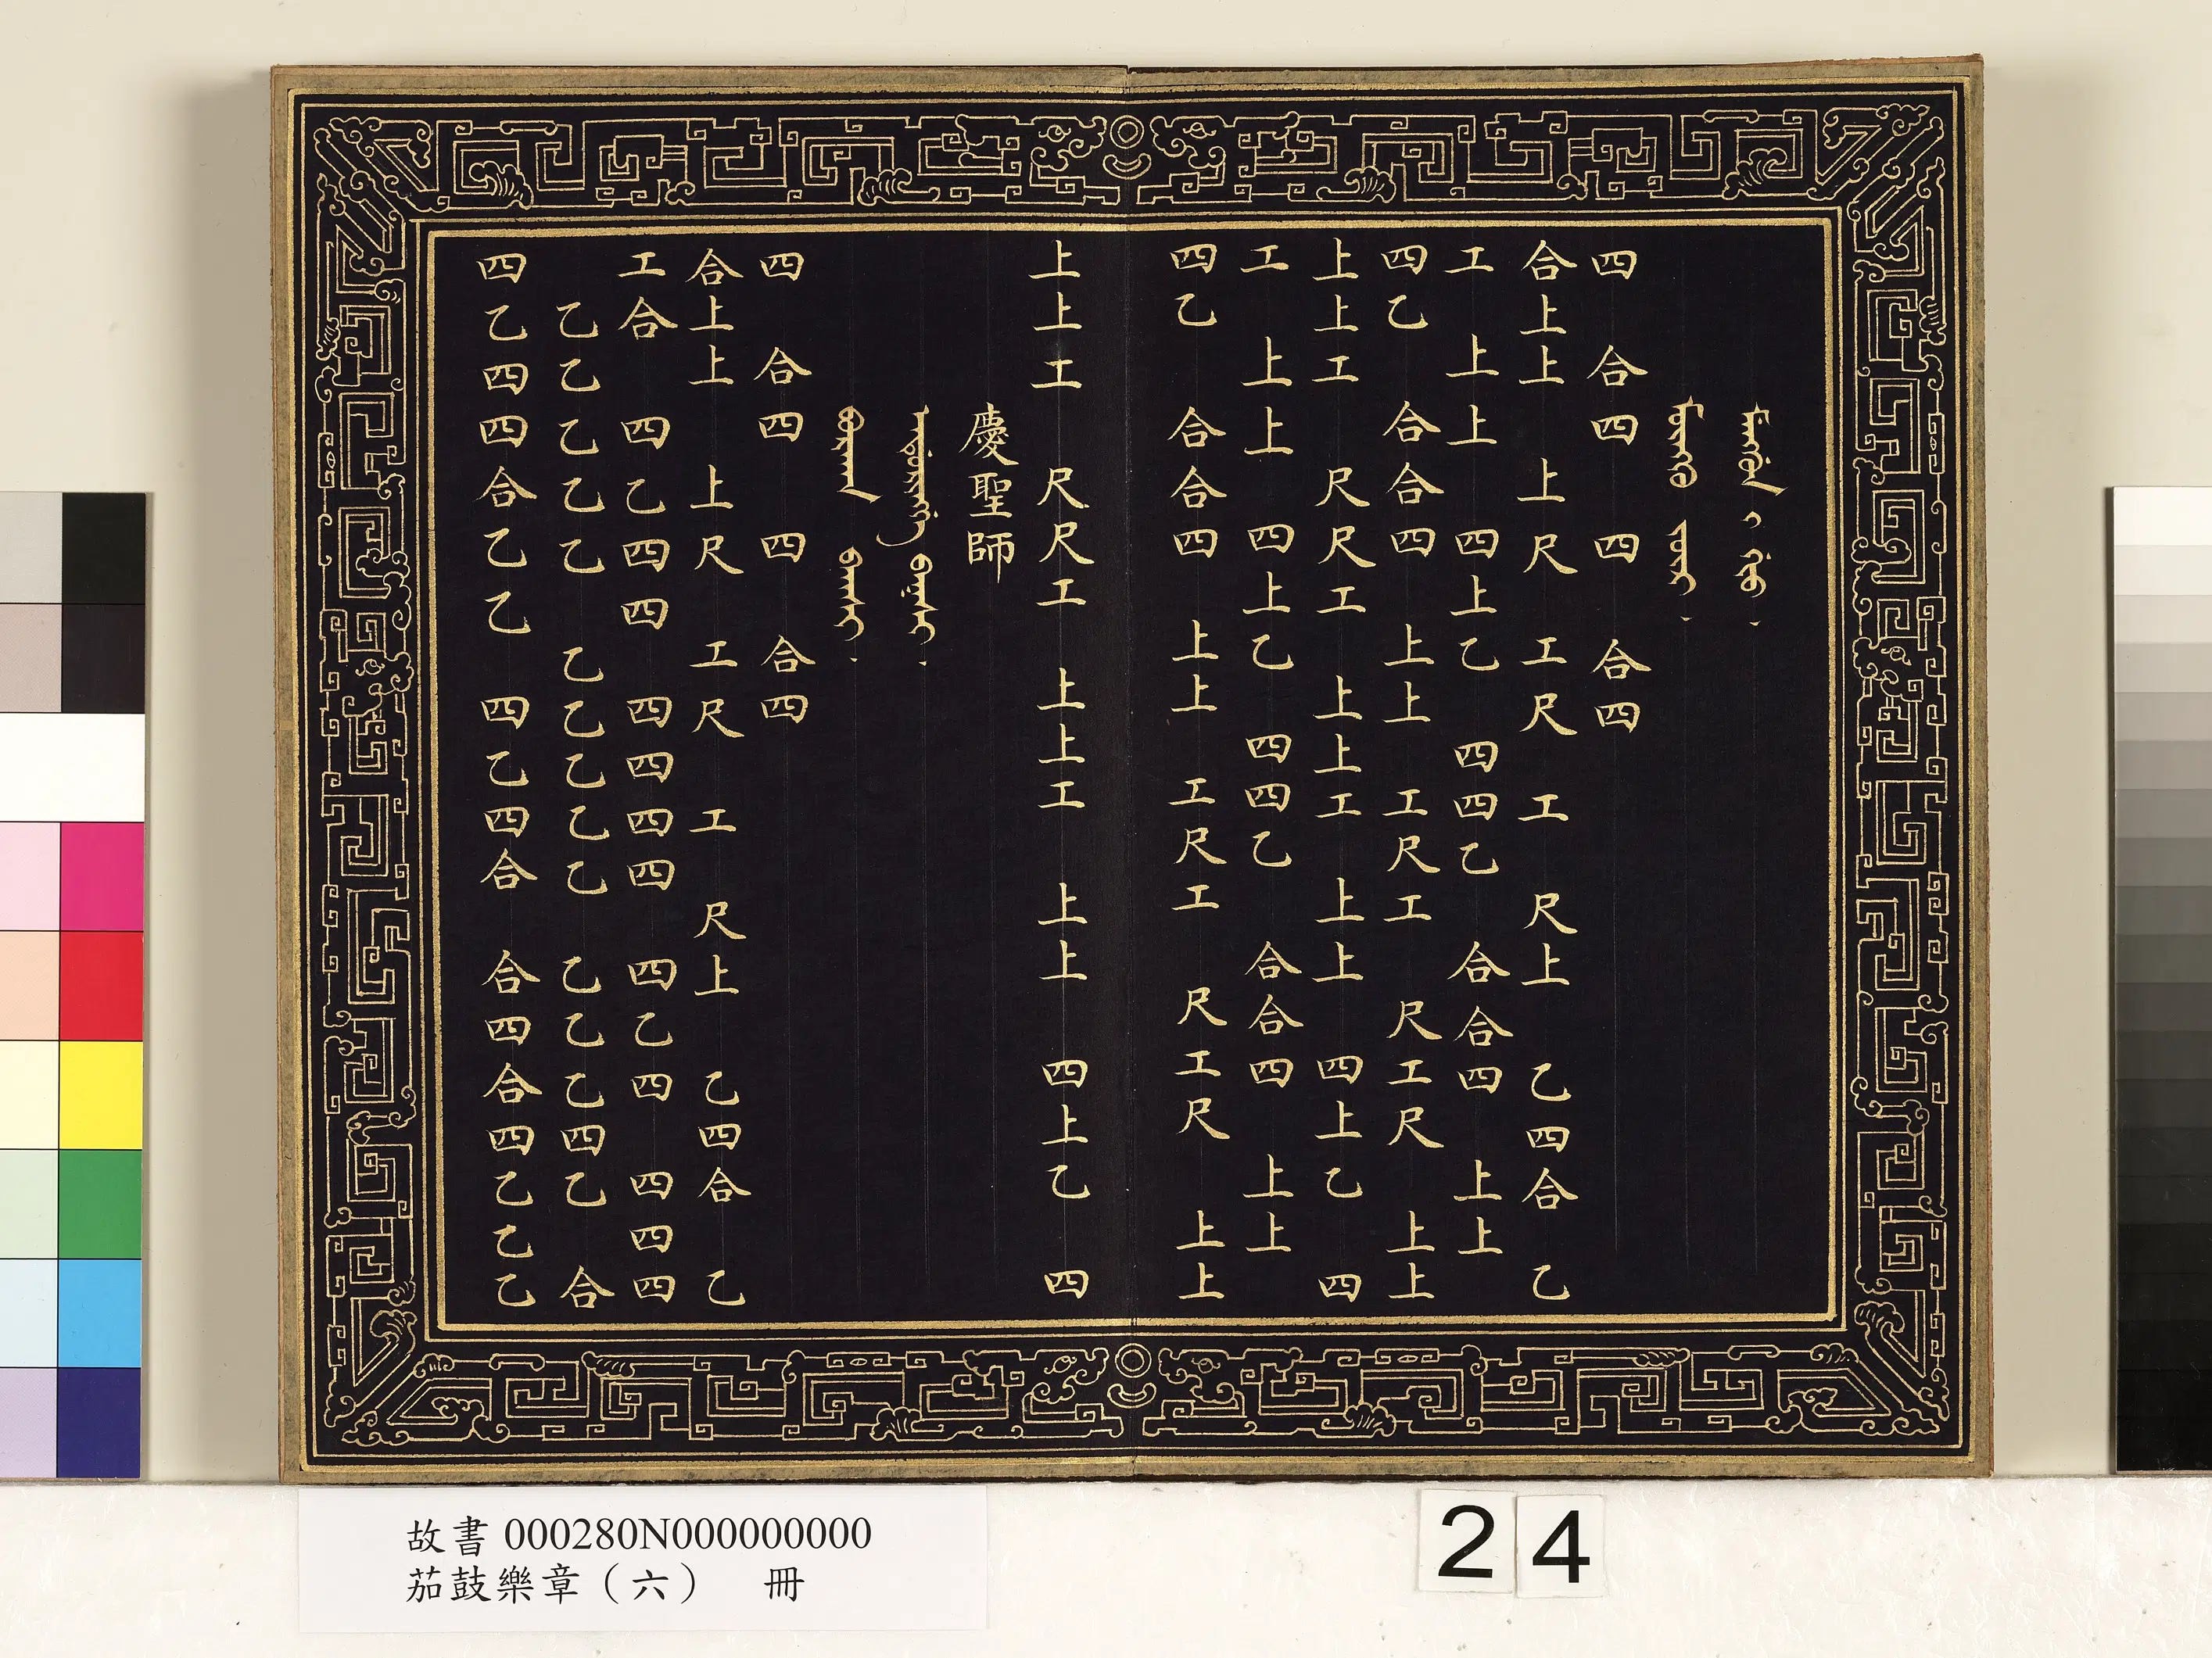 四　合四　四　合四
合上上　上尺　工尺　工　尺上　乙四合　乙
工　上上　四上乙　四四乙　合合四　上上
四乙　合合四　上上　工尺工　尺工尺　上上
上上工　尺尺工　上上工　上上　四上乙　四
工　上上　四上乙　四四乙　合合四　上上
四乙　合合四　上上　工尺工　尺工尺　上上
上上工　尺尺工　上上工　上上　四上乙　四
慶聖師
四　合四　四　合四
合上上　上尺　工尺　工　尺上　乙四合　乙
工合　四乙四四　四四四四　四乙四　四四四
乙乙乙乙乙　乙乙乙乙乙　乙乙乙四乙　合
四乙四四合乙乙　四乙四合　合四合四乙乙乙
故書000280N000000000
茄鼓樂章（六）　冊
24